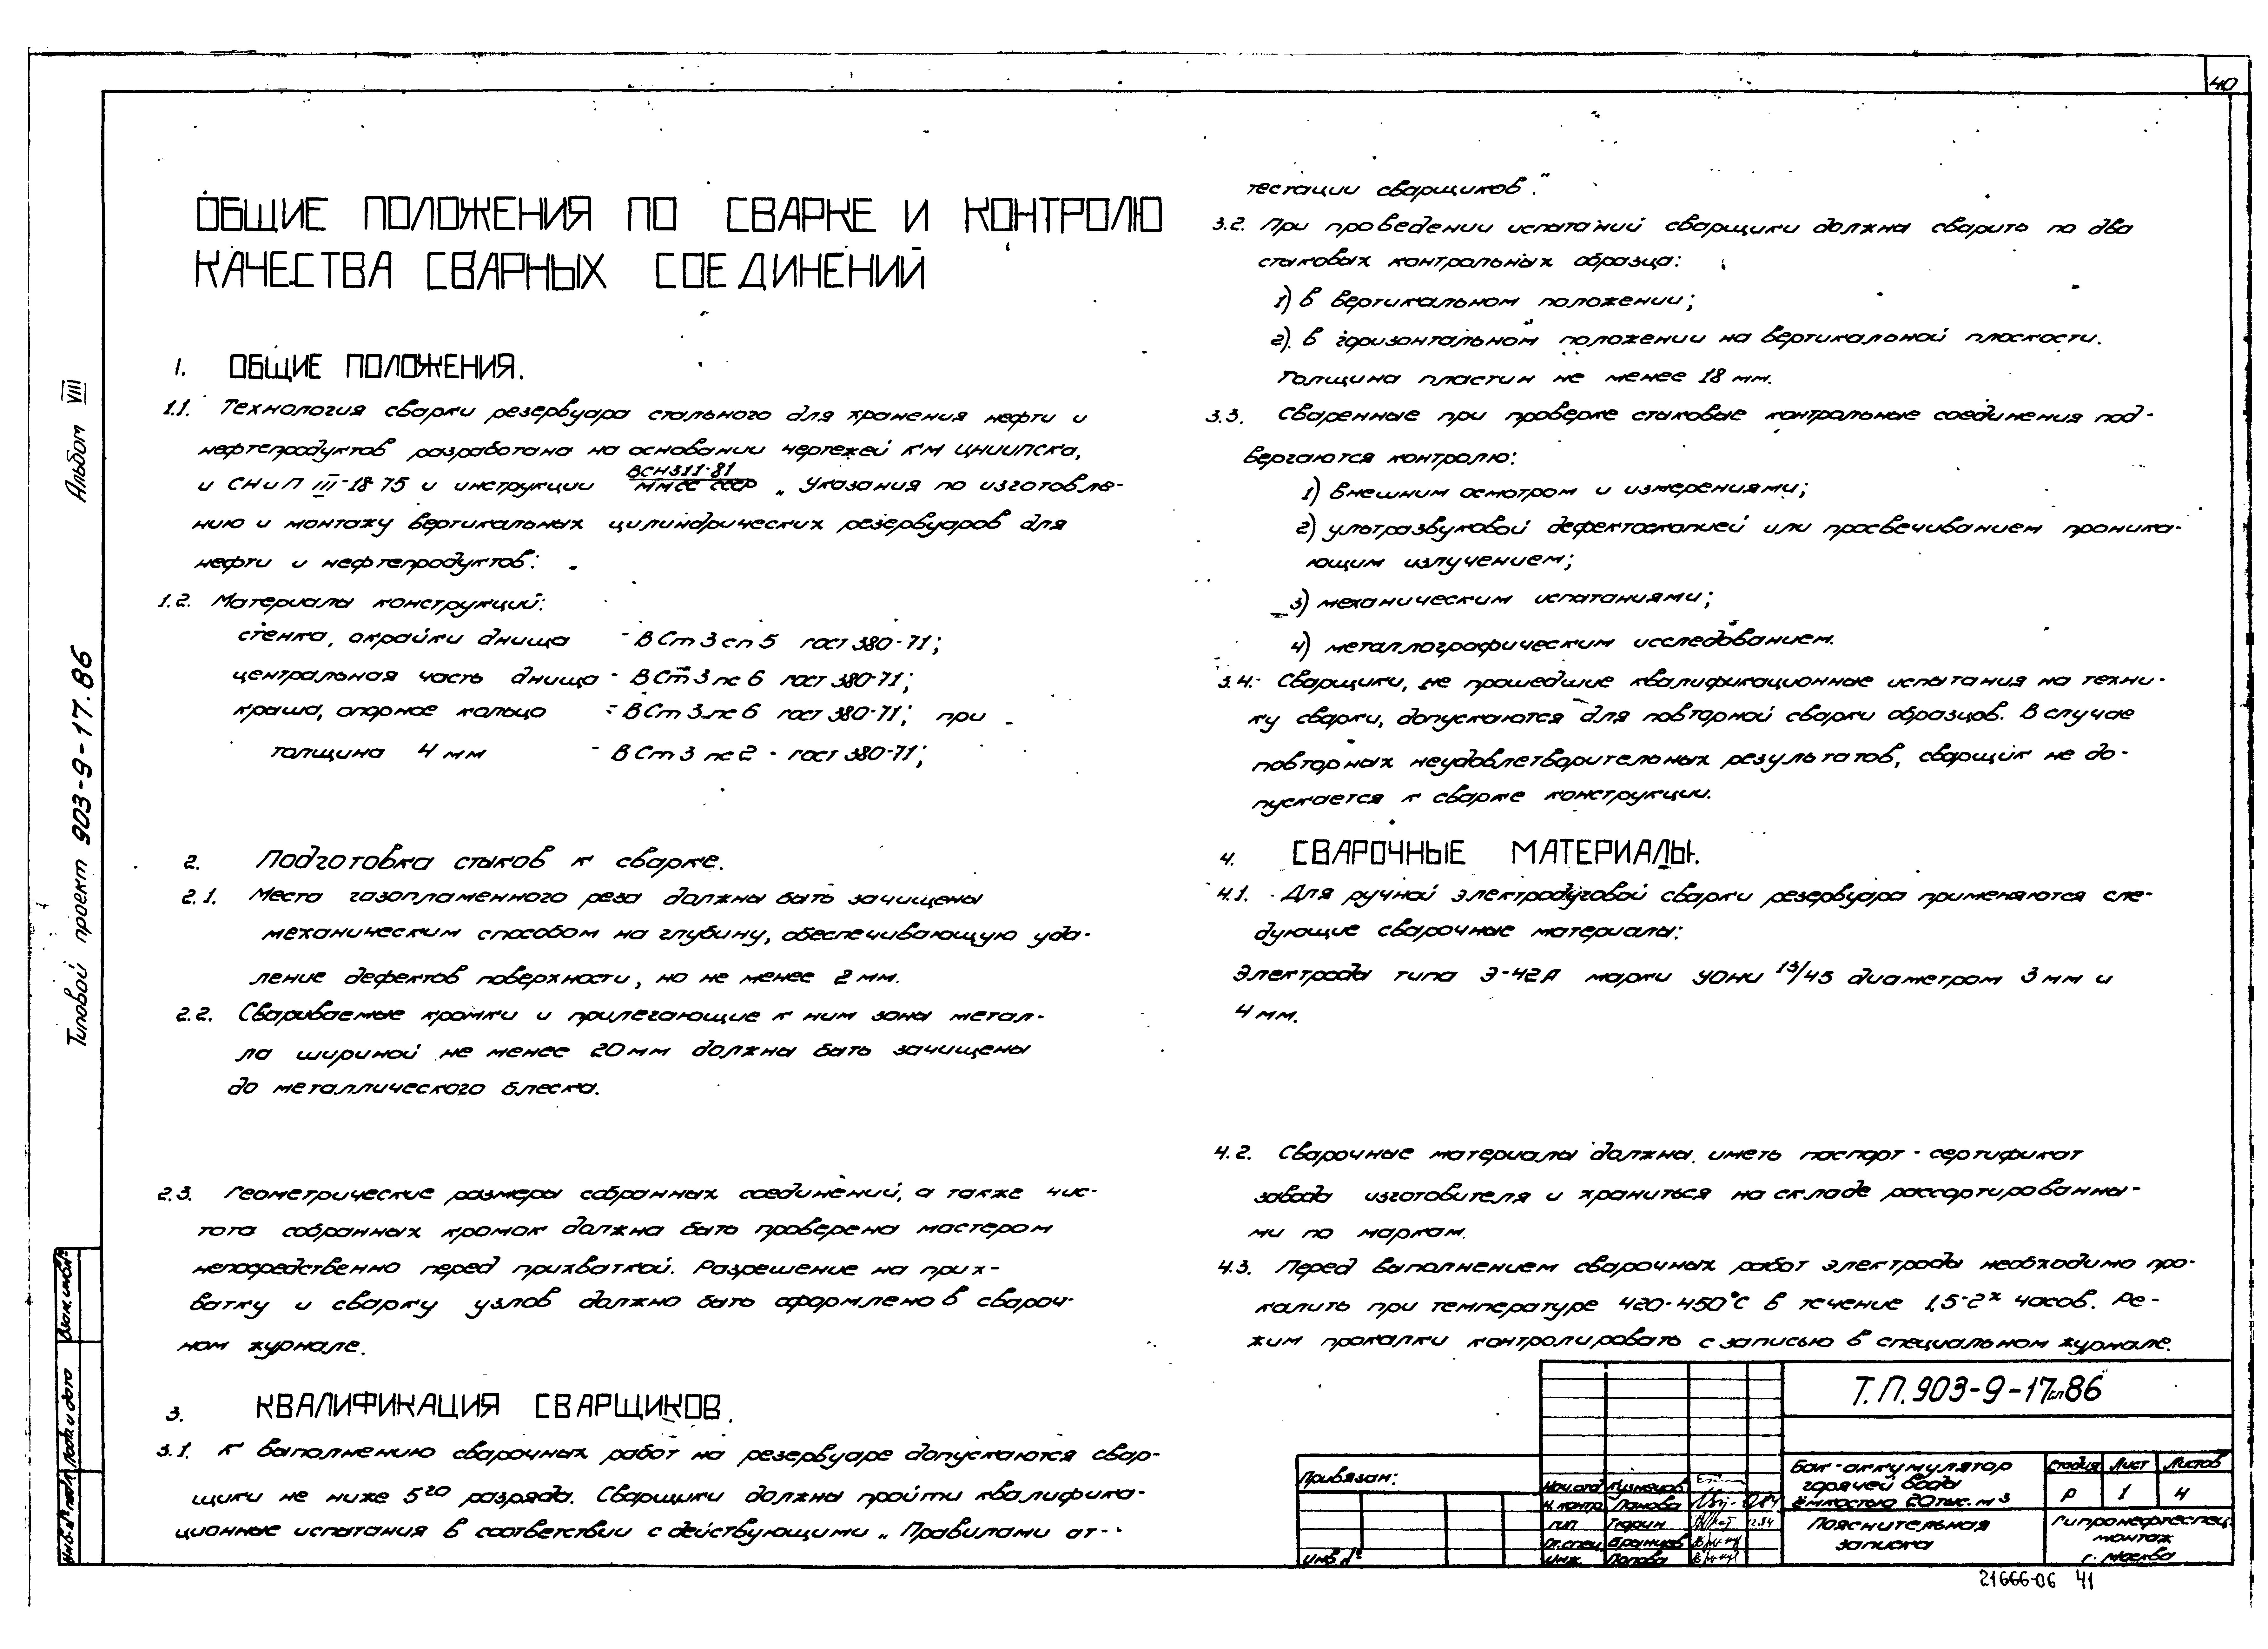 40
ОБЩИЕ ПОЛОЖЕНИЯ ПО СВАРКЕ И КОНТРОЛЮ
КАЧЕСТВА СВАРНЫХ СОЕДИНЕНИЙ
1. ОБЩИЕ ПОЛОЖЕНИЯ.
1.1. Технология сварки резервуара стального для хранения нефти и
нефтепродуктов разработана на основании чертежей КМ ЦНИИПСКа,
и СНиП III-18-75 и инструкции ВСН311-81/ММСС СССР „Указания по изготовле-
нию и монтажу вертикальных цилиндрических резервуаров для
нефти и нефтепродуктов:
1.2. Материалы конструкций:
стенка, окрайки днища - ВСт3сп5 гост 380-71;
центральная часть днища - ВСт3пс6 гост 380-71;
крыша, опорное кольцо - ВСт3пс6 гост 380-71; при
толщина 4 мм - ВСт3пс2 - гост 380-71;
2. Подготовка стыков к сварке.
2.1. Места газопламенного реза должны быть зачищены
механическим способом на глубину, обеспечивающую уда-
ление дефектов поверхности, но не менее 2 мм.
2.2. Свариваемые кромки и прилегающие к ним зоны метал-
ла шириной не менее 20 мм должны быть зачищены
до металлического блеска.
2.3. Геометрические размеры собранных соединений, а также чис-
тота собранных кромок должна быть проверена мастером
непосредственно перед прихваткой. Разрешение на прих-
ватку и сварку узлов должно быть оформлено в свароч-
ном журнале.
3. КВАЛИФИКАЦИЯ СВАРЩИКОВ.
3.1. К выполнению сварочных работ на резервуаре допускаются свар-
щики не ниже 5го разряда. Сварщики должны пройти квалифика-
ционные испытания в соответствии с действующими „Правилами ат-
тестации сварщиков".
3.2. При проведении испытаний сварщики должны сварить по два
стыковых контрольных образца:
1) в вертикальном положении;
2). в горизонтальном положении на вертикальной плоскости.
Толщина пластин не менее 18 мм.
3.3. Сваренные при проверке стыковые контрольные соединения под-
вергаются контролю:
1) внешним осмотром и измерениями;
2) ультразвуковой дефектоскопией или просвечиванием проника-
ющим излучением;
3) механическим испытаниями;
4) металлографическим исследованием.
3.4. Сварщики, не прошедшие квалификационные испытания на техни-
ку сварки, допускаются для повторной сварки образцов. В случае
повторных неудовлетворительных результатов, сварщик не до-
пускается к сварке конструкции.
4. СВАРОЧНЫЕ МАТЕРИАЛЫ.
4.1. Для ручной электродуговой сварки резервуара применяются сле-
дующие сварочные материалы:
Электроды типа Э-42А марки УОНИ 13/45 диаметром 3 мм и
4 мм.
4.2. Сварочные материалы должны иметь паспорт - сертификат
завода изготовителя и храниться на складе рассортированны-
ми по маркам.
4.3. Перед выполнением сварочных работ электроды необходимо про-
калить при температуре 420-450°С в течение 1,5-2х часов. Ре-
жим прокалки контролировать с записью в специальном журнале.
Альбом VIII
Типовой проект 903-9-17.86
Взам. инв.№
Подп. и дата
Инв.№ подл.
Привязан:
Инв.№
Нач.отд Кузнецов
Н. контр Панова 12.84
ГИП Тюрин 12.84
Гл.спец. Вранцов
Инж. Попова
Т.П. 903-9-17сп86
Бак-аккумулятор
горячей воды
ёмкостью 20 тыс. м3
Стадия Лист Листов
Р 1 4
Пояснительная
записка
Гипронефтеспец-
монтаж
г. Москва
21666-06 41